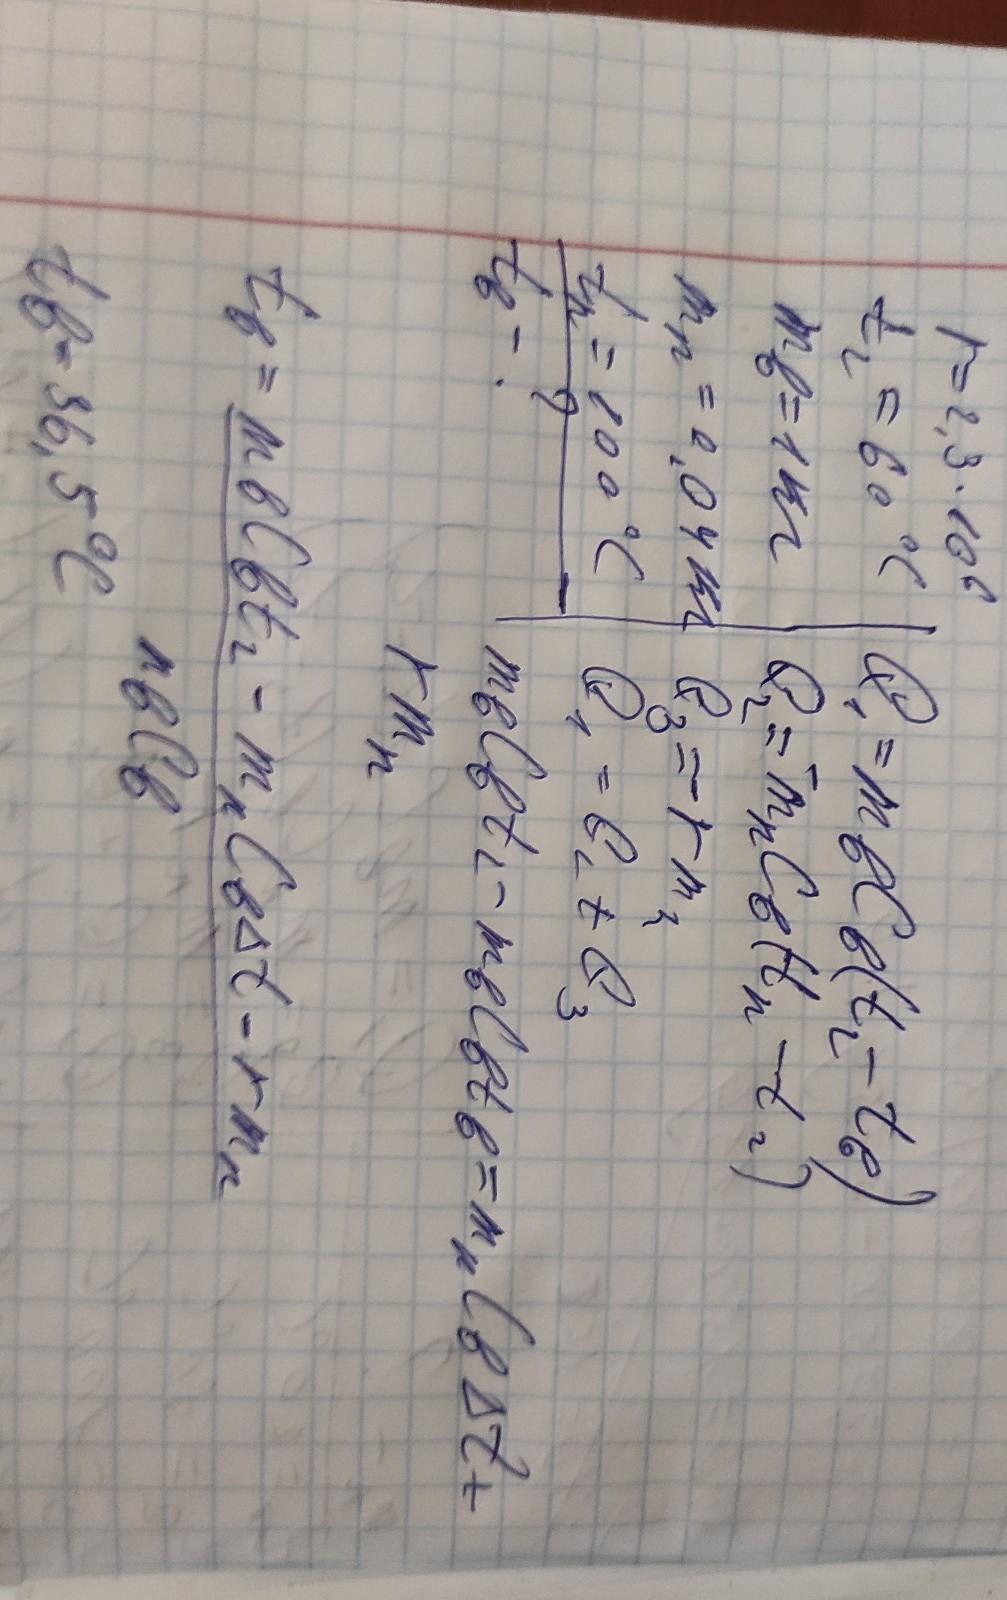 r = 2,3·10⁶
t₂ = 60 °C
mв = 1 кг
mп = 0,04 кг
tп = 100 °C
tв - ?
Q₁ = mвCв(t₂ - tв)
Q₂ = mпCв(tп - t₂)
Q₃ = r mп
Q₁ = Q₂ + Q₃
mвCвt₂ - mвCвtв = mпCвΔt +
r mп
tв = mвCвt₂ - mпCвΔt - r mп
mвCв
tв = 36,5 °C